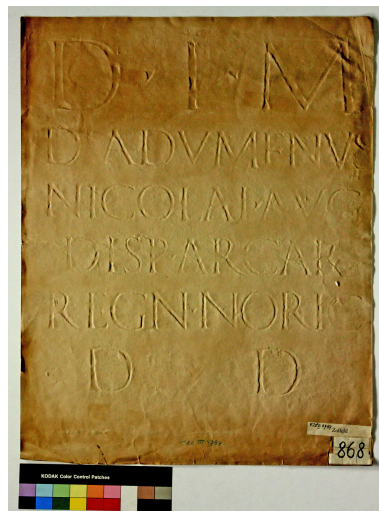 D · I · M
D ADVMENVS
NICOLAI · AVG
DISP · ARCAR
REGN · NORIC
D D
868
KODAK Color Control Patches